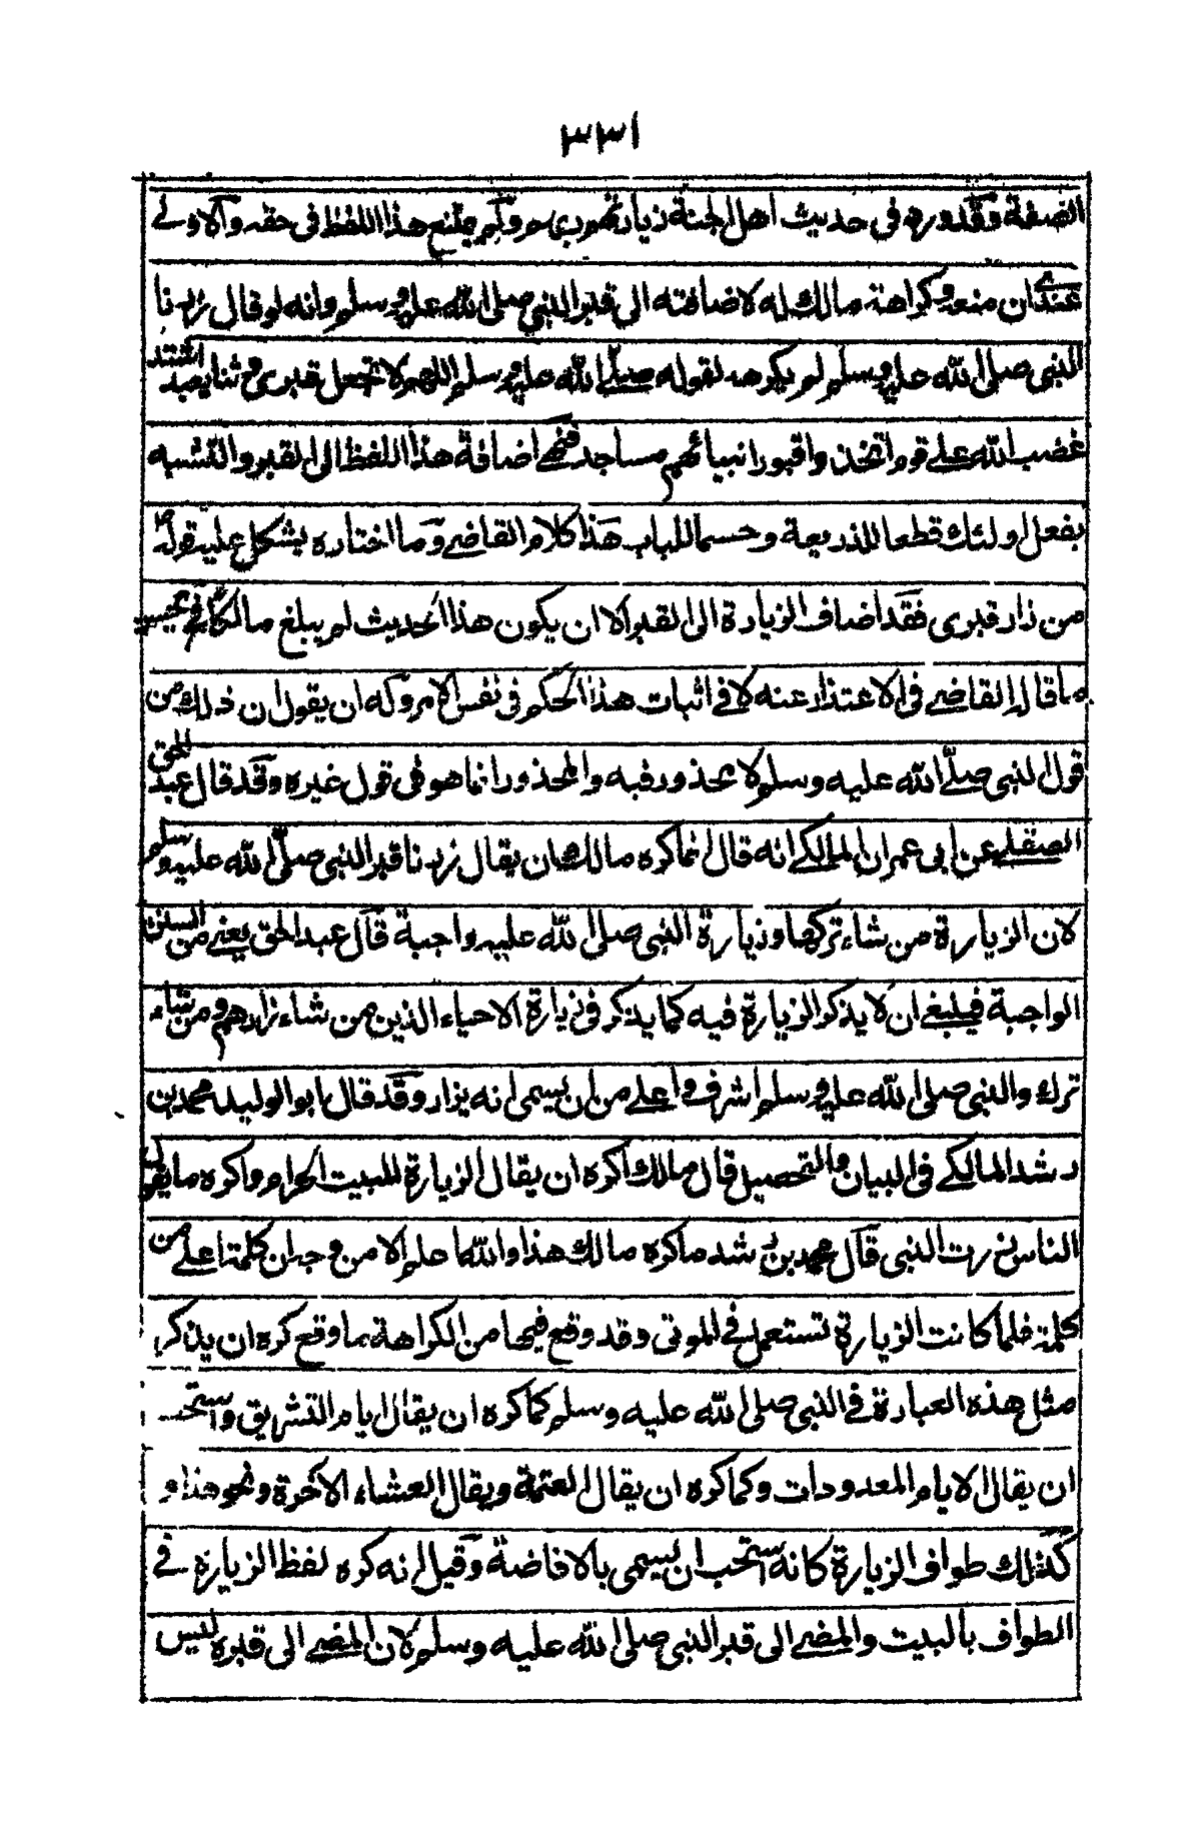 ٣٣١
الصفة وقد ورد فى حديث اهل الجنة زيارتهم لربهم ولم يمتنع هذا اللفظ فى حقه والاولى
عندى ان منعه وكراهة مالك له لاضافته الى قبر النبي صلى الله عليه وسلم وانه لو قال زرنا
النبى صلى الله عليه وسلم لم يكرهه لقوله صلى الله عليه وسلم اللهم لا تجعل قبرى وثنا يعبد اشتد
غضب الله على قوم اتخذوا قبور انبيائهم مساجد فنهى اضافة هذا اللفظ الى القبر والتشبه
بفعل اولئك قطعا للذريعة وحسما للباب هذا كلام القاضى وما اختاره يشكل عليه قوله
من زار قبرى فقد اضاف الزيارة الى القبر الا ان يكون هذا الحديث لم يبلغ مالكا فح يحسن
ما قال القاضى فى الاعتذار عنه لا فى اثبات هذا الحكم فى نفس الامر وله ان يقول ان ذلك من
قول النبى صلى الله عليه وسلم لا محذور فيه والمحذور انما هو فى قول غيره وقد قال عبد الحق
الصقلى عن ابى عمران المالكى انه قال انما كره مالك ان يقال زرنا قبر النبى صلى الله عليه وسلم
لان الزيارة من شاء تركها وزيارة النبى صلى الله عليه واجبة قال عبد الحق يعنى من السنن
الواجبة فينبغى ان لا يذكر الزيارة فيه كما يذكر فى زيارة الاحياء الذين من شاء زارهم ومن شاء
ترك والنبى صلى الله عليه وسلم اشرف واعلى من ان يسمى انه يزار وقد قال ابو الوليد محمد بن
رشد المالكى فى البيان والتحصيل قال مالك اكره ان يقال الزيارة للبيت الحرام واكره ما يقول
الناس زرت النبى قال محمد بن رشد ما كره مالك هذا والله اعلم الا من وجه ان كلمة اعلى من
كلمة فلما كانت الزيارة تستعمل فى الموتى وقد وقع فيها من الكراهة ما وقع كره ان يذكر
مثل هذه العبارة فى النبى صلى الله عليه وسلم كما كره ان يقال ايام التشريق واستحب
ان يقال الايام المعدودات وكما كره ان يقال العتمة ويقال العشاء الآخرة ونحو هذا و
كذلك طواف الزيارة كانه استحب ان يسمى بالافاضة وقيل انه كره لفظ الزيارة فى
الطواف بالبيت والمضى الى قبر النبى صلى الله عليه وسلم لان المضى الى قبره ليس